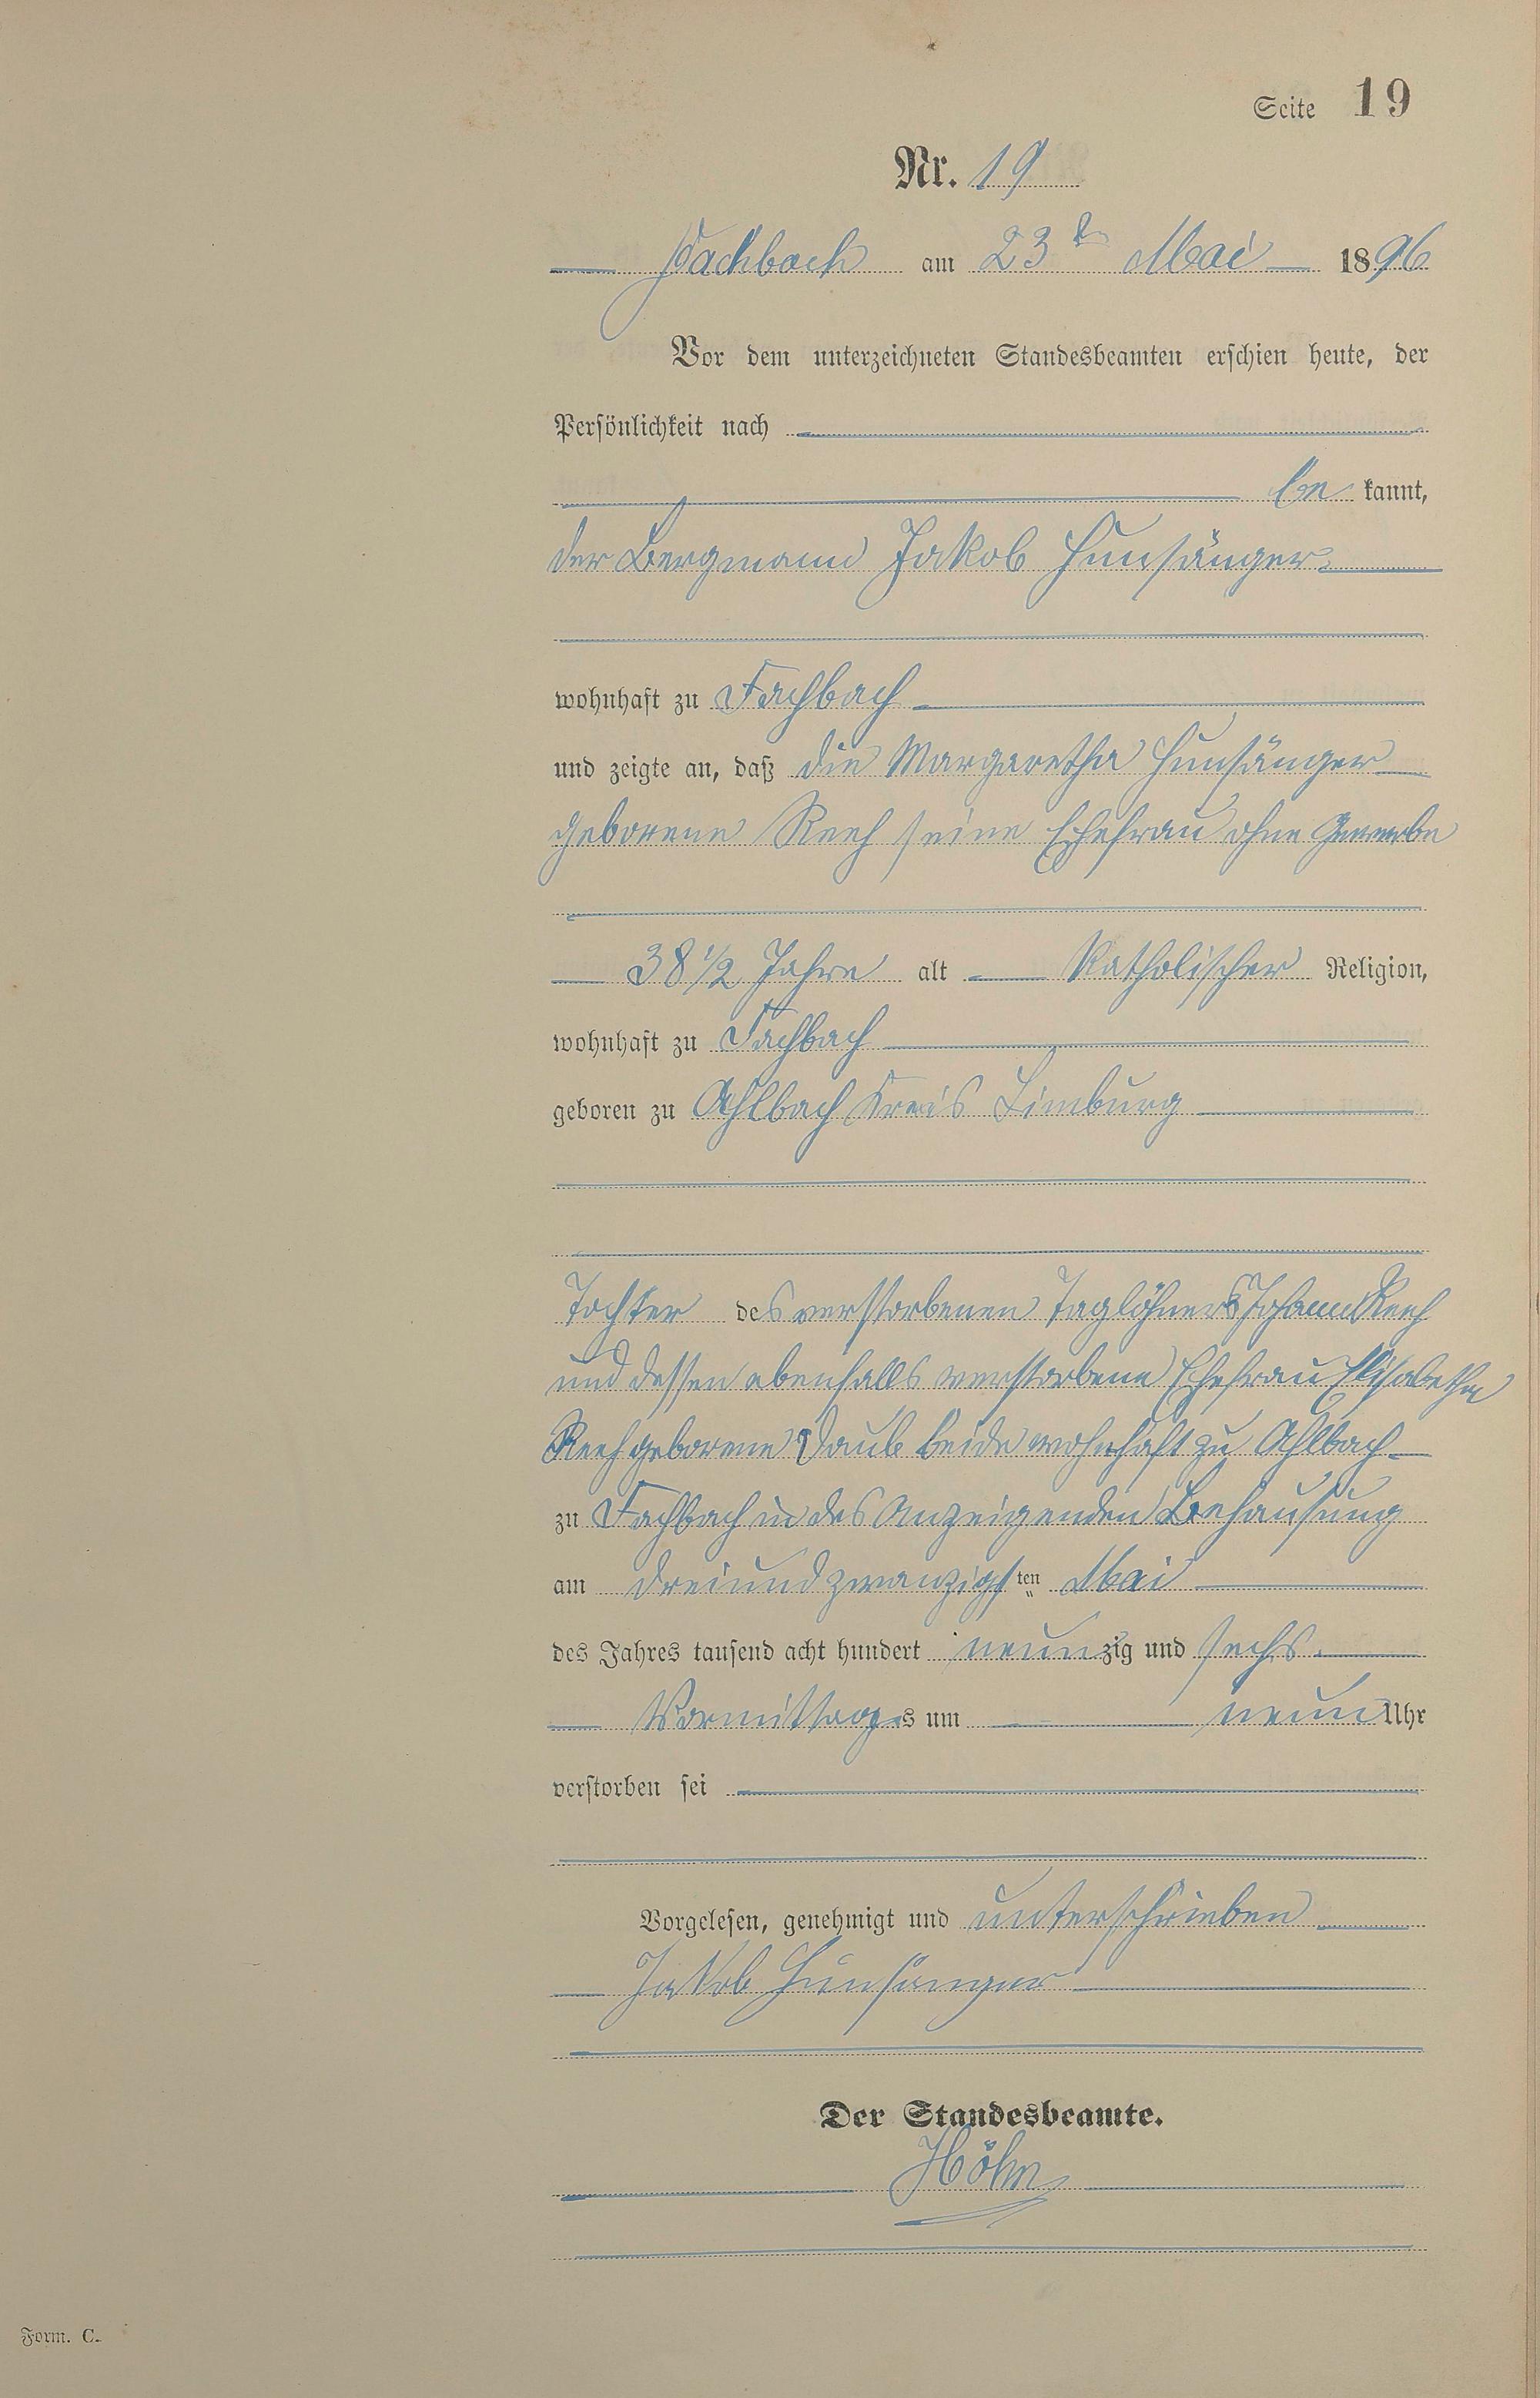 Seite 19
Nr. 19
Fachbach am 23ten Mai 1896
Vor dem unterzeichneten Standesbeamten erschien heute, der
Persönlichkeit nach
be kannt,
der Bergmann Jakob Hunsänger
wohnhaft zu Fachbach
und zeigte an, daß die Margaretha Hunsänger
geborene Reeh seine Ehefrau ohne Gewerbe
38 1/2 Jahre alt Katholischer Religion,
wohnhaft zu Fachbach
geboren zu Ahlbach Kreis Limburg
Tochter des verstorbenen Taglöhners Johann Reeh
und dessen ebenfalls verstorbene Ehefrau Elisabetha
Reeh geborene Daub beide wohnhaft zu Ahlbach
zu Fachbach in des Anzeigenden Behausung
am dreiundzwanzigsten Mai
des Jahres tausend acht hundert neunzig und sechs
Vormittags um neun Uhr
verstorben sei
Vorgelesen, genehmigt und unterschrieben
Jakob Hunsänger
Der Standesbeamte.
Höhn
Form. C.